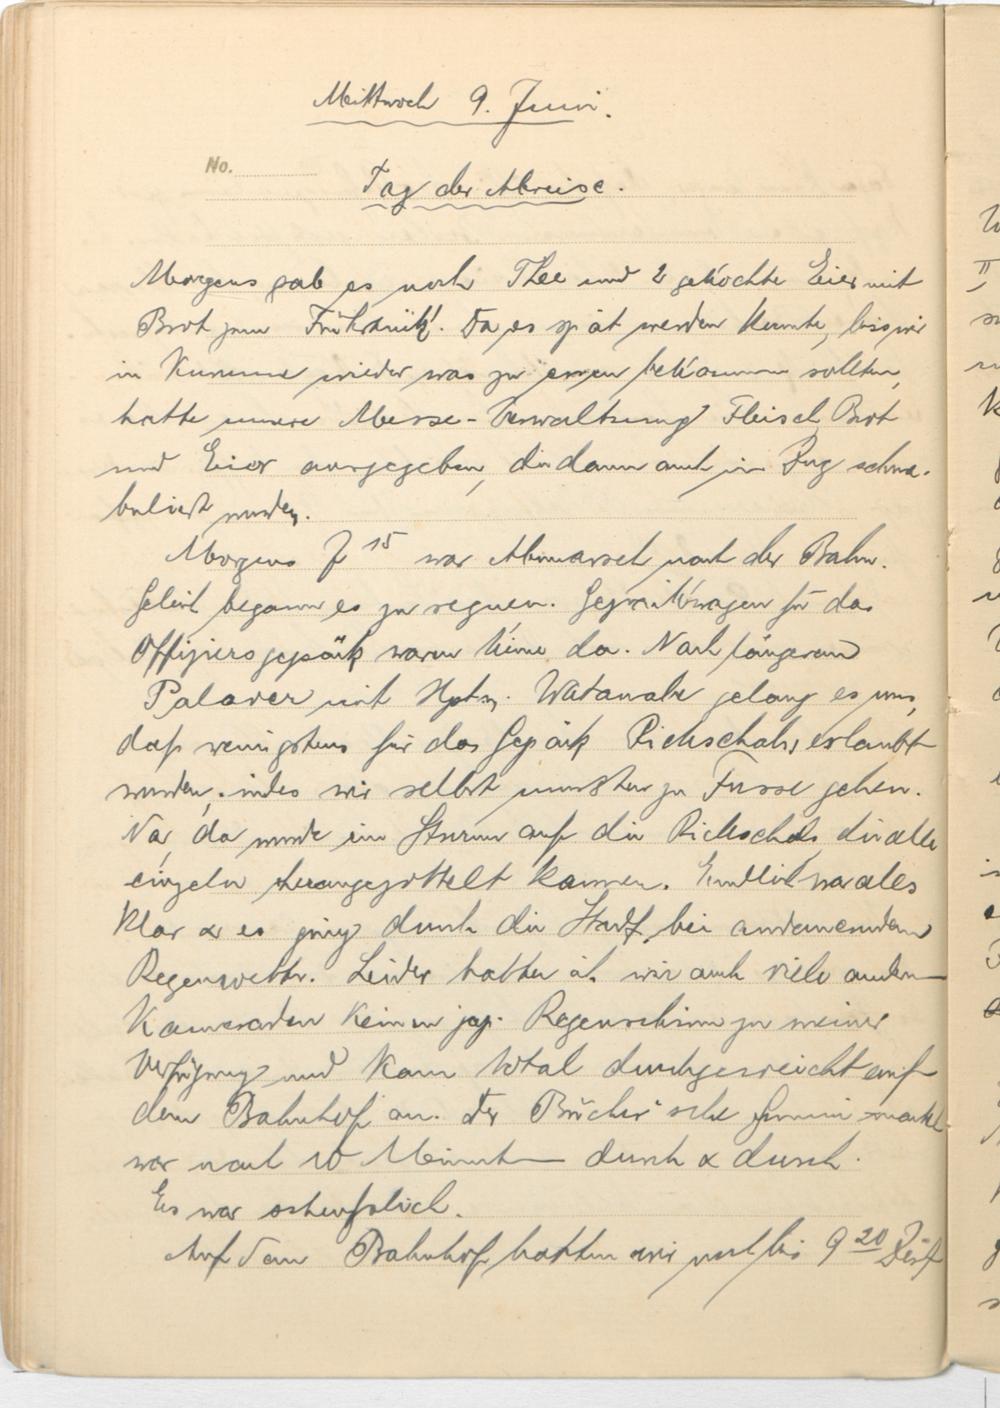 Mittwoch 9. Juni.
No.
Tag der Abreise.
Morgens gab es noch Thee und 2 gekochte Eier mit
Brot zum Frühstück. Da es spät werden konnte, bis wir
in Kurume wieder was zu essen bekommen sollten,
hatte unsere Messe-Verwaltung Fleisch, Brot
und Eier ausgegeben, die dann auch im Zug schna-
buliert wurden.
Morgens 7 15 war Abmarsch nach der Bahn.
Gleich begann es zu regnen. Gepäckwagen für das
Offiziersgepäck waren keine da. Nach längerem
Palaver mit Hptm. Watanabe gelang es uns,
daß wenigstens für das Gepäck Rickschahs erlaubt
wurden, indes wir selbst mussten zu Fusse gehen.
Na, da wurde ein Sturm auf die Rickschahs, die alle
einzeln herangezottelt kamen. Endlich war alles
klar & es ging durch die Stadt, bei andauerndem
Regenwetter. Leider hatte ich wie auch viele andere
Kameraden keinen jap. Regenschirm zu meiner
Verfügung und kam total durchgeweicht auf
dem Bahnhof an. Der Bücher'sche Gummimantel
war nach 10 Minuten durch & durch.
Es war scheusslich.
Auf dem Bahnhof hatten wir noch bis 9 20 Zeit